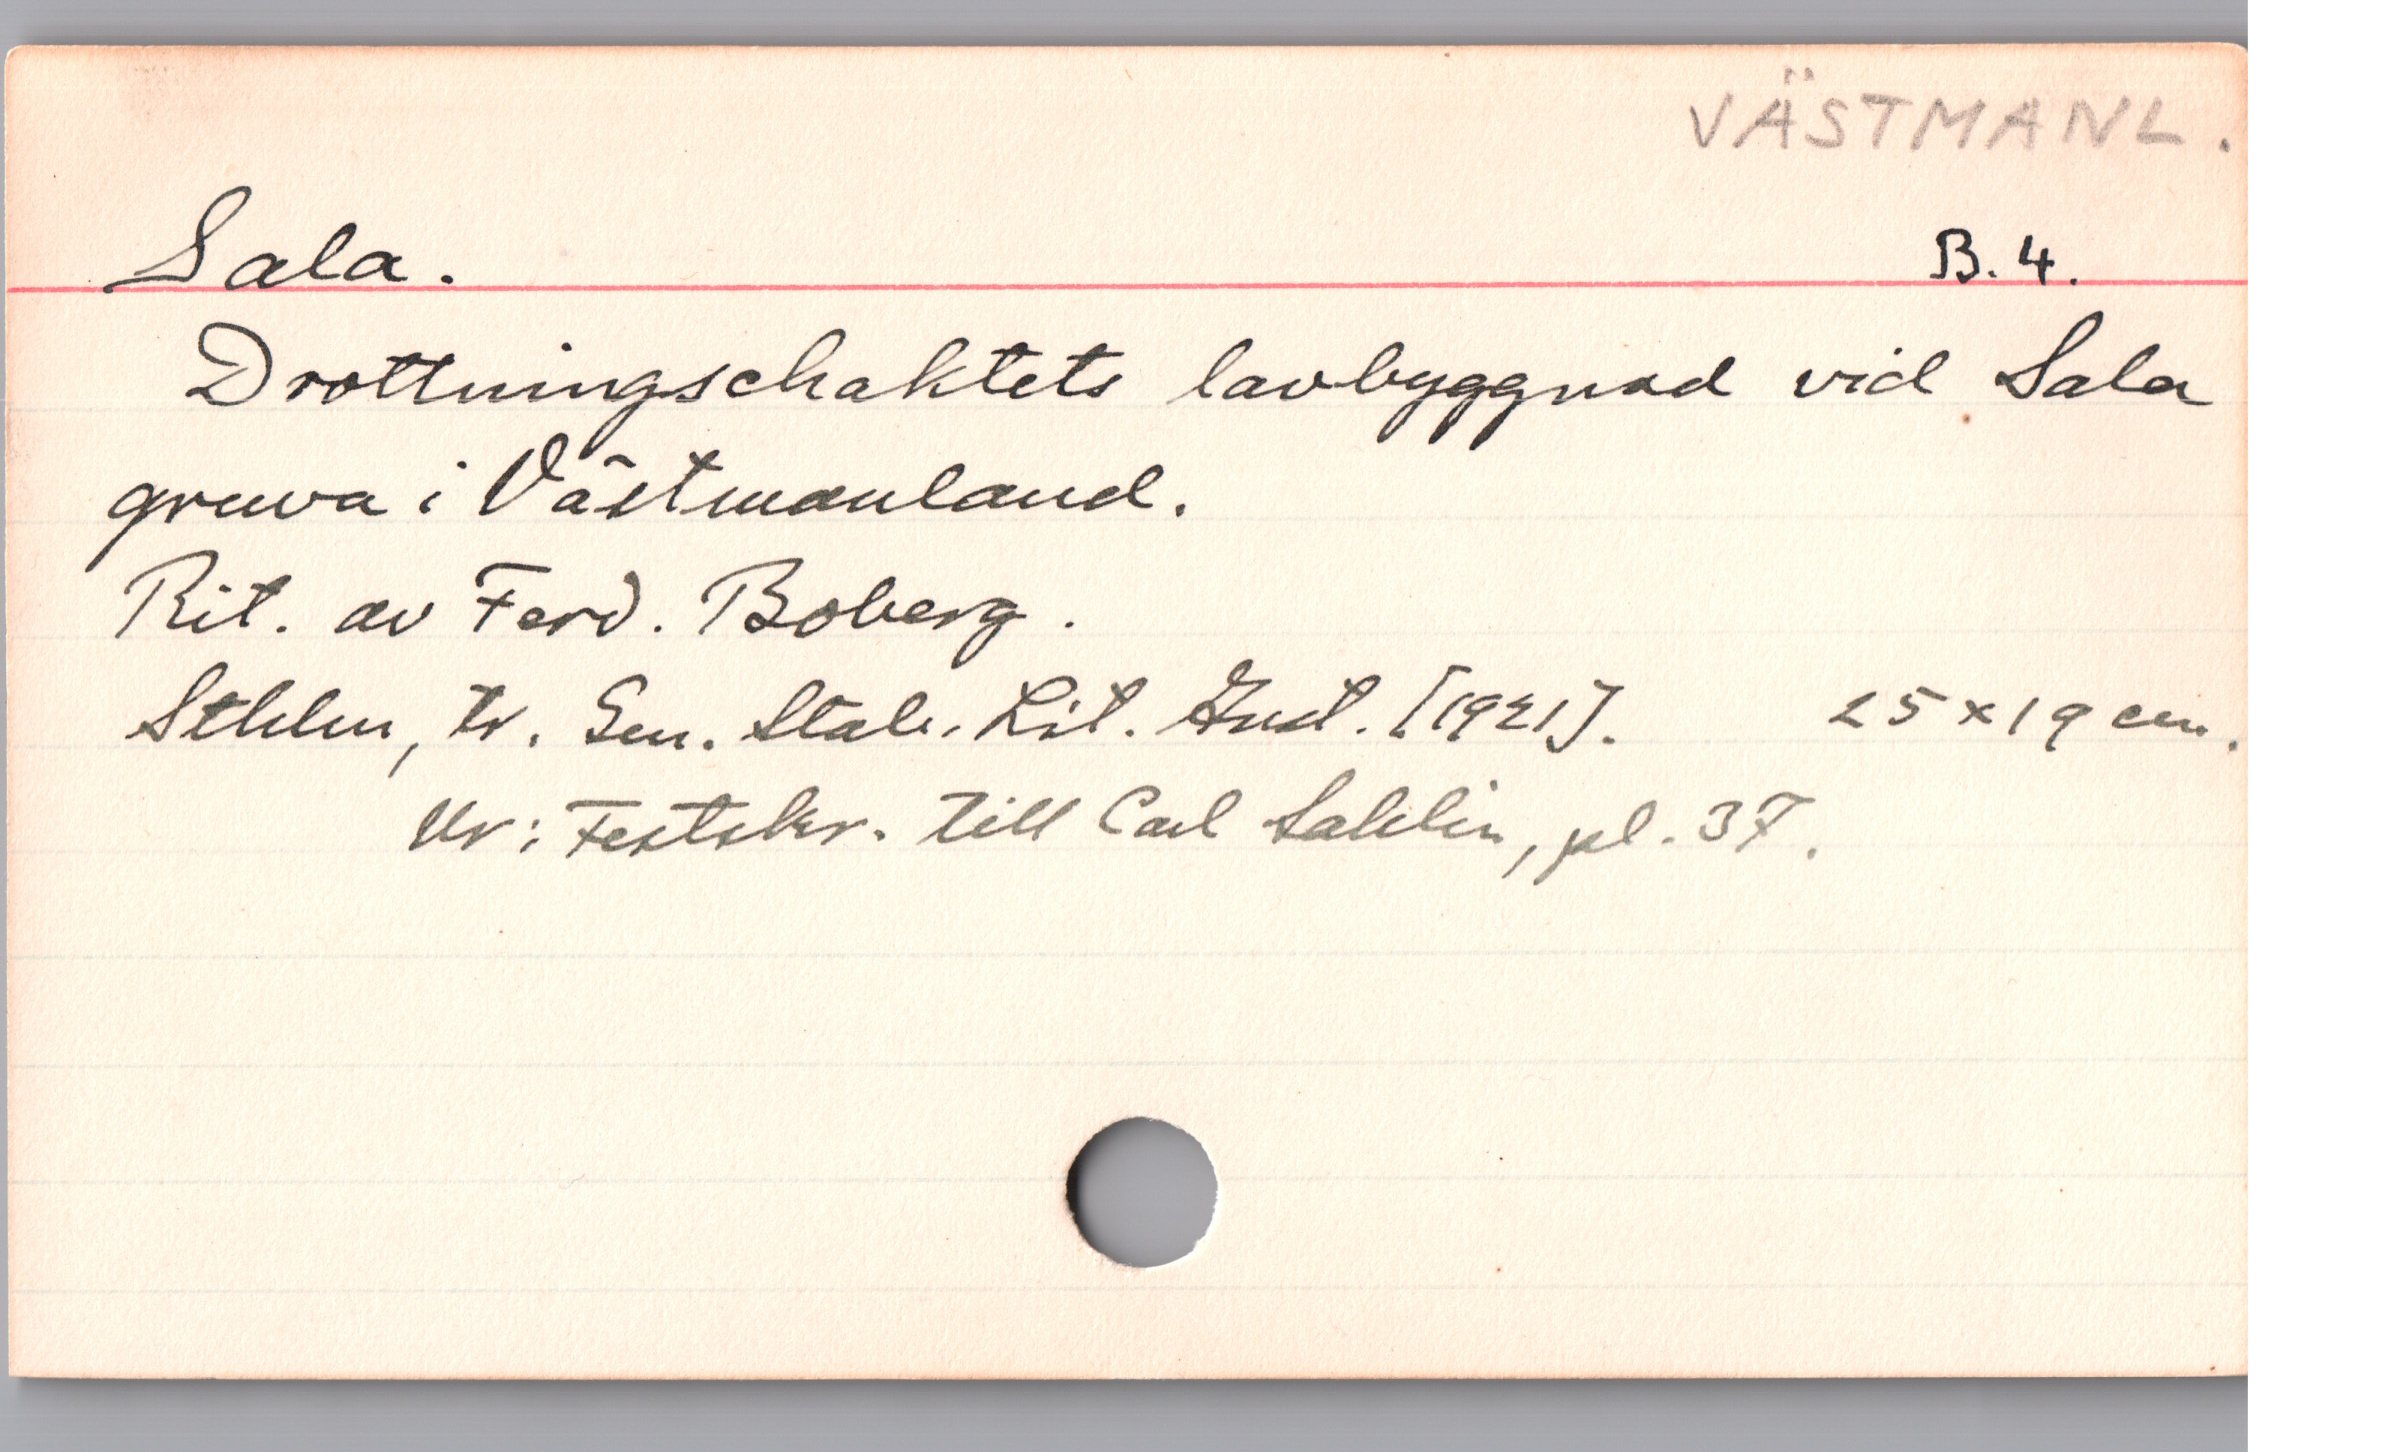 VÄSTMANL.
Sala. B. 4.
Drottningschaktets lavbyggnad vid Sala
gruva i Västmanland.
Rit. av Ferd. Boberg.
Sthlm, tr. Gen. Stab. Lit. Inst. [1921]. 25 x 19 cm.
Ur: Festskr. till Carl Sahlin, pl. 37.